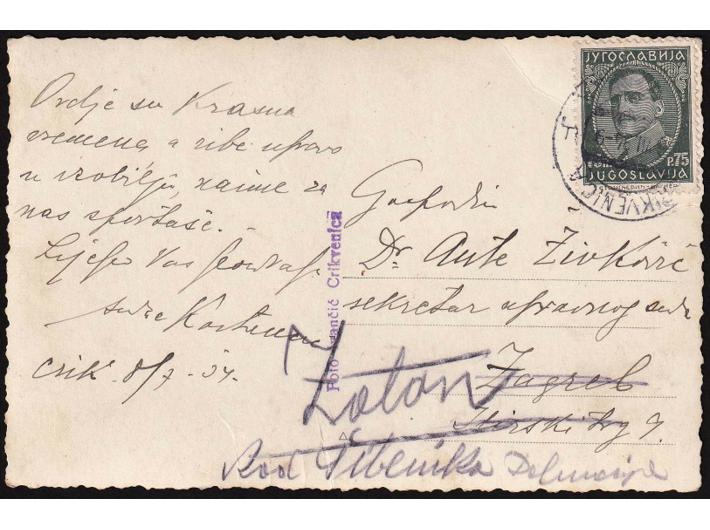 Ovdje su krasna
vremena, a ribe upravo
u izobilju, naime za
nas sportaše.
Lijepo Vas pozdravlja
Crik. 8/7-34.
Foto Crikvenica
ЈУГОСЛАВИЈА
P.75
JUGOSLAVIJA
CRIKVENICA
Gospodin
Dr. Ante Živković
sekretar upravnog suda
Zagreb
Ilirski trg 9.
Zaton
kod Šibenika Dalmacija